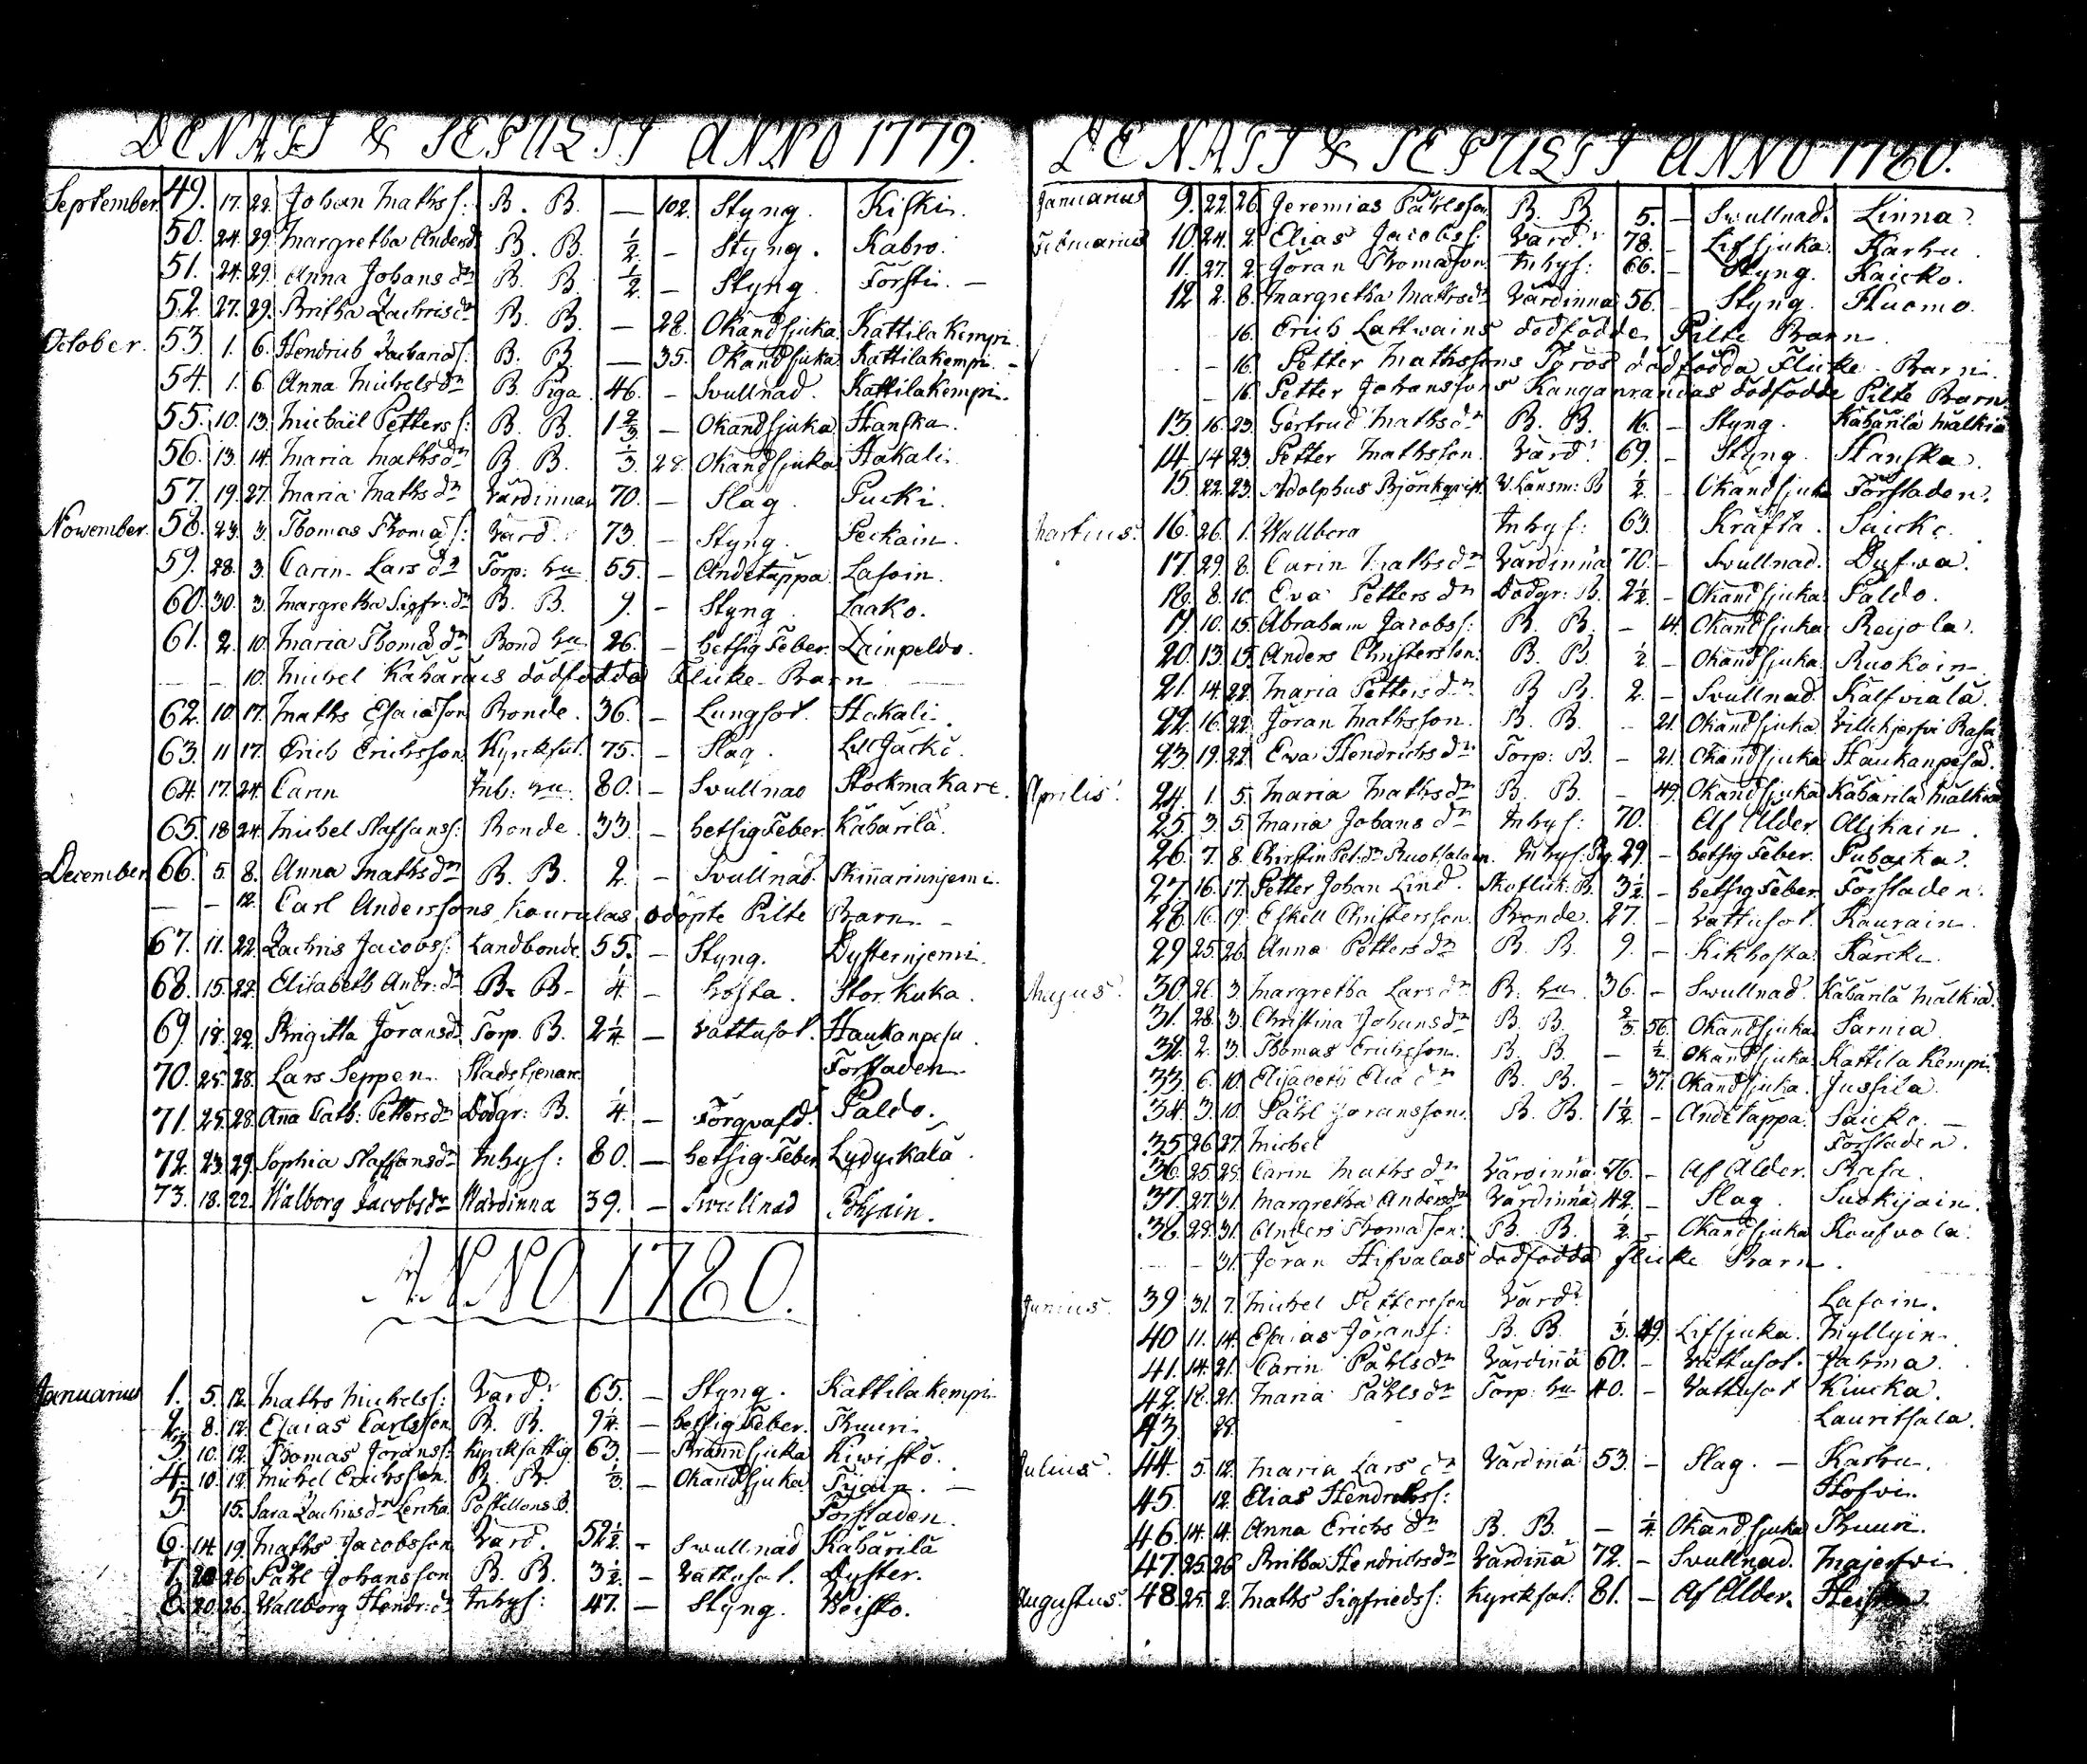 DENATI & SEPULTI ANNO 1779.
September. 49. 17. 22. Johan Mathss: B. B. — 102. Styng. Kiski.
50. 24. 29. Margretha Andersdr B. B. ½. - Styng. Kabro.
51. 24. 29. Anna Johans dr B. B. ½. - Styng. Forsti. -
52. 27. 29. Britha Zachrisdr B. B. — 28. Okänd sjuka Kattilakempi.
October. 53. 1. 6. Hendrich Zachariæs: B. B. — 35. Okänd sjuka Kattilakempi. -
54. 1. 6. Anna Michelsdr B. Piga 46. - Svullnad. Kattilakempi.
55. 10. 13. Michaël Petters: B. B. 1⅔. - Okänd sjuka Hanska.
56. 13. 14. Maria Mathsdr B. B. ⅓. 28. Okänd sjuka Hakali.
57. 19. 27. Maria Mathsdr Värdinna 70. - Slag. Pucki.
November. 58. 23. 3. Thomas Thomæs: Värd. 73. - Styng. Peckain.
59. 28. 3. Carin Lars dr Torp: hu 55. - Andetäppa Lasoin.
60. 30. 3. Margretha Sigfr: dr B. B. 9. - Styng. Laako.
61. 2. 10. Maria Thomædr Bond hu 26. - hetsig Feber. Lainpeldo.
— - 10. Michel Kähäräis dödfödda Flicke-Barn
62. 10. 17. Maths Esaiæson Bonde. 36. - Lungsot. Hakali.
63. 11 17. Erich Erichsson Kyrckfat. 75. - Slag. Lill Jäcki.
64. 17. 24. Carin Inh: hu. 80. - Svullnad Stockmakare.
65. 18 24. Michel Staffanss: Bonde. 33. - hetsig Feber. Kähärilä.
December 66. 5 8. Anna Mathsdr B. B. 2. - Svullnad. Skinnarinnjemi.
— - 12. Carl Anderssons Kaurulas odöpte Pilte Barn -
67. 11. 22. Zachris Jacobss: Landbonde. 55. - Styng. Dysternjemi.
68. 15. 22. Elisabeth Andr: dr B. B. ¼. - hosta. Stor Kuka.
69. 18. 22. Brigitta Joransd Torp. B. 2¼. - Vattusot. Haukanpesu
70. 25. 28. Lars Seppen. Stadstjenare Förstaden
71. 25. 28. Aña Cath: Pettersdr Dödgr: B. ¼. - Förqvafd. Paldo.
72. 23. 29. Sophia Staffansdr Inhys: 80. — hetsig Feber Lydyckälä.
73. 18. 22. Walborg Jacobsdr Wärdinna 39. - Swullnad Pohjain.
ANNO 1780.
Januarius 1. 5. 12. Maths Michelss: Värd. 65. - Styng. Kattilakempi
2. 8. 12. Esaias Carlsson B. B. 9¼. - hetsig Feber. Thuuri.
3. 10. 12. Thomas Joranss: Kyrckfattig 63. - Brännsjuka Kiwistö.
4. 10. 12. Michel Erichsson. B. B. ⅓. - Okänd sjuka. Tijain. -
5. 15. Sara Zachrisdr Lenka Postillons B. Förstaden.
6. 14. 19. Maths Jacobsson Värd. 52½. - Swullnad Kähärilä
7. 20 26 Påhl Johansson B. B. 3½. - Vattusot. Dyster.
8. 20. 26. Wallborg Hendr: dr Inhys: 47. - Styng. Woisto.
DENATI & SEPULTI ANNO 1780.
Januarius 9. 22. 26. Jeremias Påhlsson B. B. 5. - Swullnad. Linna.
Februarius 10. 24. 2. Elias Jacobss: Värd. 78. - Lifsjuka. Karhu.
11. 27. 2. Jöran Thomæson. Inhys: 66. - Styng. Kaicko.
12 2. 8. Margretha Mathsdr Värdinna 56. - Styng. Huomo.
16. Erich Lattwains dödfödde Pilte Barn
- - 16. Petter Mathssons Töros dödfödda Flicke-Barn.
- 16. Petter Johanssons Kanganrandas dödfödde Pilte Barn
13 16. 23. Gertrud Mathsdr B. B. 16. - Styng. Kähärilä Mälkiä
14. 14 23. Petter Mathsson. Värd. 69. - Styng. Hanska.
15. 22. 23. Adolphus Björkqvist. V. Länsm: B ½. - Okänd sjuka Förstaden.
Martius. 16. 26. 1. Wallbora Inhys: 63. Kräfta. Saicko.
17. 29. 8. Carin Mathsdr Värdinna 70. - Svullnad. Dufwa.
18. 8. 10. Eva Petters dr Dödgr: B. 2½. - Okänd sjuka. Paldo.
19. 10. 15. Abraham Jacobss: B. B. - 14. Okänd sjuka Reijola.
20. 13. 15. Anders Christersson. B. B. ½. - Okänd sjuka. Ruokoin.
21. 14. 22. Maria Pettersdr B. B. 2. - Svullnad. Kalfviälä.
22. 16. 22. Jöran Mathsson. B. B. - 21. Okänd sjuka. Villikjerfvi Rasa
23. 19. 22. Eva Hendrichsdr Torp: B. - 21. Okänd sjuka Haukanpesad.
Aprilis. 24. 1. 5. Maria Mathsdr B. B. - 49. Okänd sjuka Kähärilä Mälkiä
25. 3. 5. Maria Johans dr Inhys: 70. Af Ålder Ollikain.
26. 7. 8. Christin Pet: dr Ruotsalain. Inhys: Pig. 29. - hetsig Feber. Pubacka.
27. 16. 17. Petter Johan Lind. Skoflick: B. 3½. - hetsig Feber Förstaden.
28. 16. 19. Eskell Christersson. Bonde. 27. - Vattusot. Kaurain.
29 25. 26. Anna Pettersdr B. B. 9. - Kikhosta. Kärcki.
Majus. 30. 26. 3. Margretha Larsdr B. hu 36. - Swullnad. Kähärilä Mälkiä.
31. 28. 3. Christina Johansdr B. B. ⅔. 56. Okänd sjuka Sarnia.
32. 2. 3. Thomas Erichsson. B. B. - ½. Okänd sjuka. Kattila Kempi
33. 6. 10. Elisabeth Eliædr B. B. - 37. Okänd sjuka. Jussila.
34. 3. 10. Påhl Joransson. B. B. 1½. - Andetäppa. Saicko. -
35 26 27. Michel Förstaden.
36. 25. 28. Carin Maths dr Värdinna 76. - Af Ålder. Rasa.
37. 27. 31. Margretha Andersdr Värdinna 42. - Slag. Suokijain.
38. 28. 31. Anders Thomæson: B. B. ½. - Okänd sjuka Koufvola.
- - 31. Jöran Hifvalas dödfödda flicke Barn.
Junius. 39 31. 7. Michel Pettersson Värd. Lasoin.
40 11. 14. Esaias Joranss: B. B. ⅓. 49. Lifsjuka. Myllyin.
41. 14. 21. Carin Påhlsdr Värdinna 60. - Vattusot. Jahma.
42. 18. 21. Maria Påhlsdr Torp: hu 40. - Vattusot Kiucka.
43. 28. Lauritsala.
Julius. 44. 5. 12. Maria Lars dr Värdinna 53. - Slag. - Karhu.
45. 12. Elias Hendrichss: Hofvi.
46. 14. 14. Anna Erichs dr B. B. - ¼. Okänd sjuka Thuuri.
47. 25. 26 Britha Hendrichsdr Värdinna 72. - Svullnad. Majerfvi
Augustus. 48. 25. 2. Maths Sigfriedss: Kyrckfat: 81. - Af Ålder.